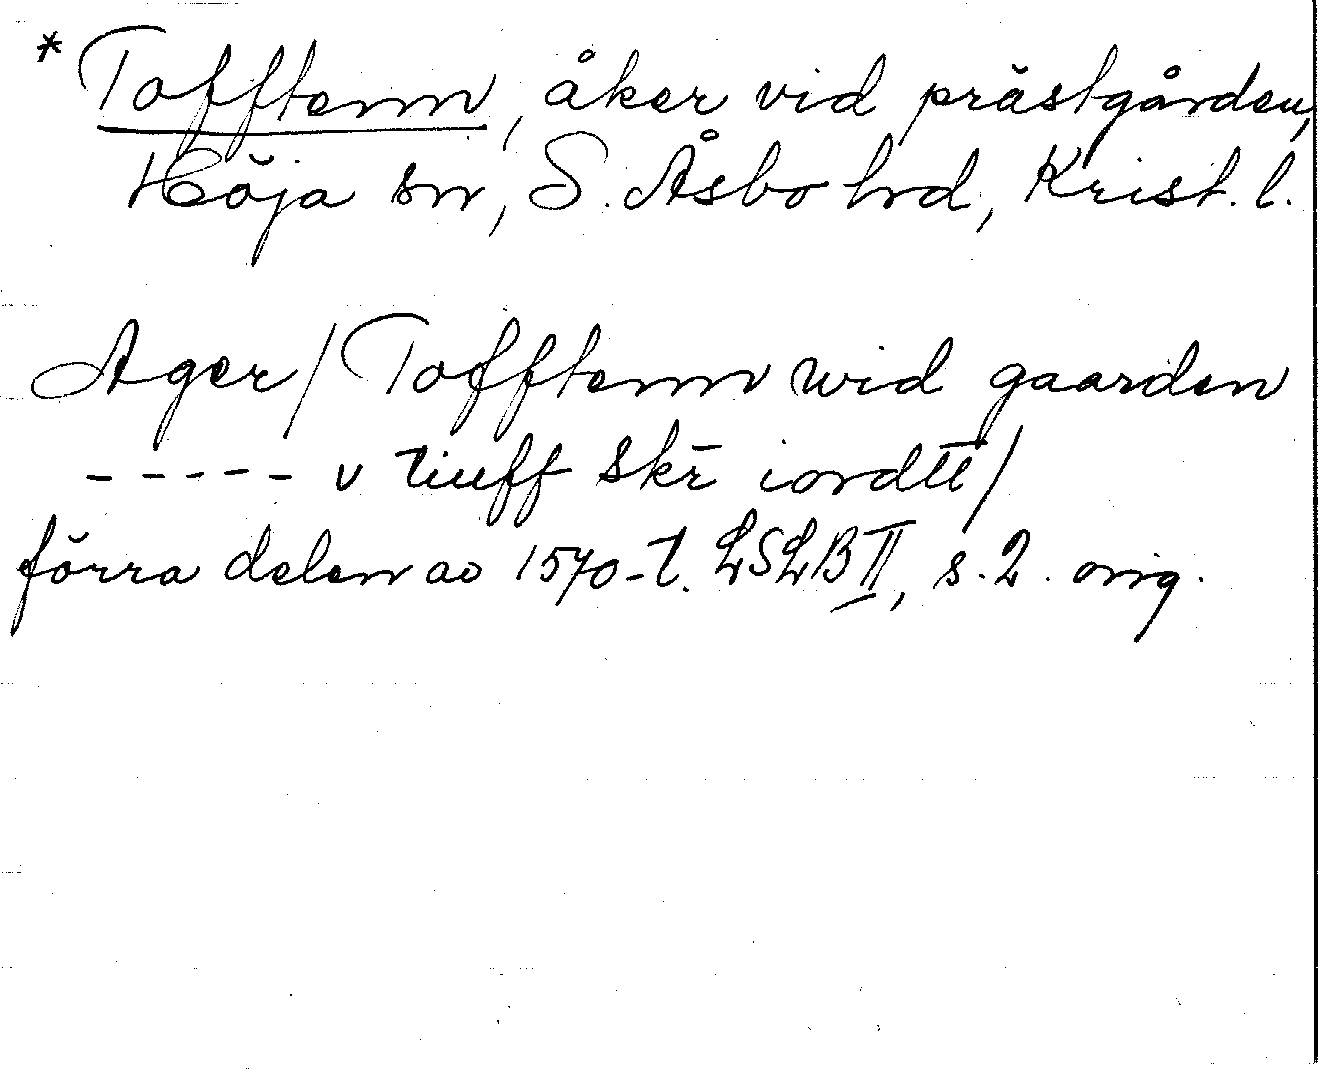 * Tofftenn, åker vid prästgården,
Höja sn, S. Åsbo hrd, Krist. l.
Ager / Tofftenn wid gaarden
- - - - - v tiuff skr̄ iordtt /
förra delen av 1570-t. LSLB II, s. 2. orig.